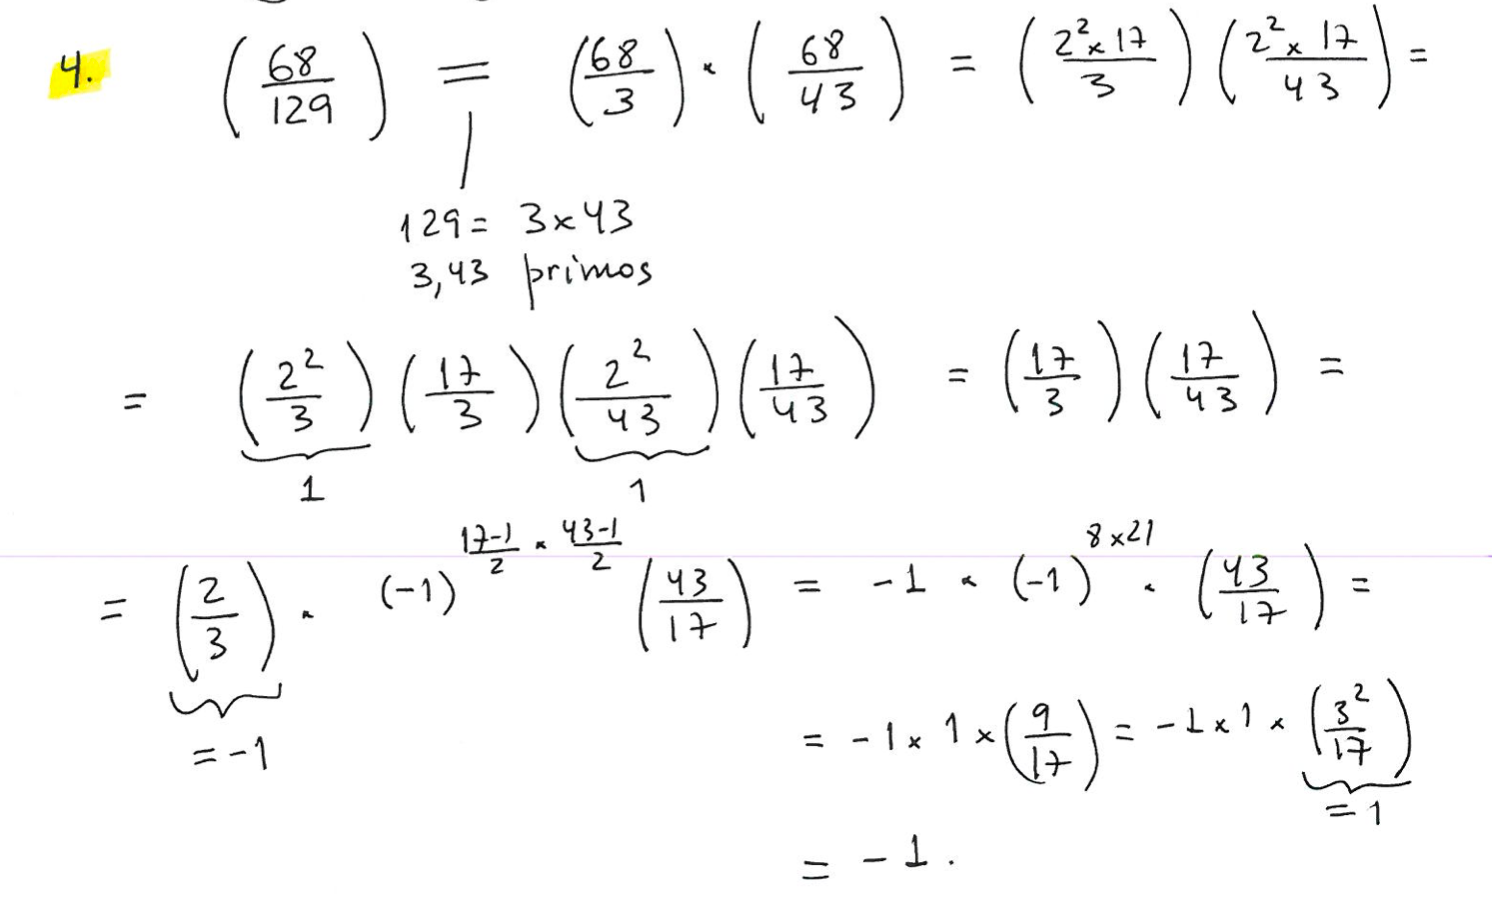 4. (68/129) = (68/3) × (68/43) = (2²×17/3) (2²×17/43) =
129 = 3×43
3,43 primos
= (2²/3) (17/3) (2²/43) (17/43) = (17/3) (17/43) =
1 1
= (2/3) × (-1)^(17-1/2 × 43-1/2) (43/17) = -1 × (-1)^(8×21) × (43/17) =
= -1
= -1 × 1 × (9/17) = -1 × 1 × (3²/17)
= 1
= -1.